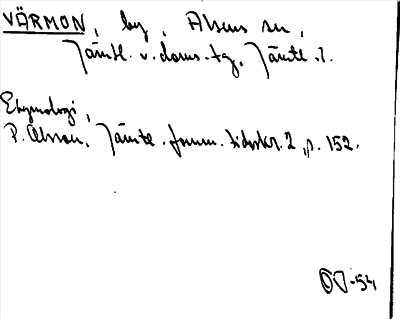 VÄRMON, by, Alsens sn,
Jämtl. v. doms. tg, Jämtl. l.
Etymologi,
P. Olsson, Jämtl. fornm. tidskr. 2, s. 152.
OJ-54